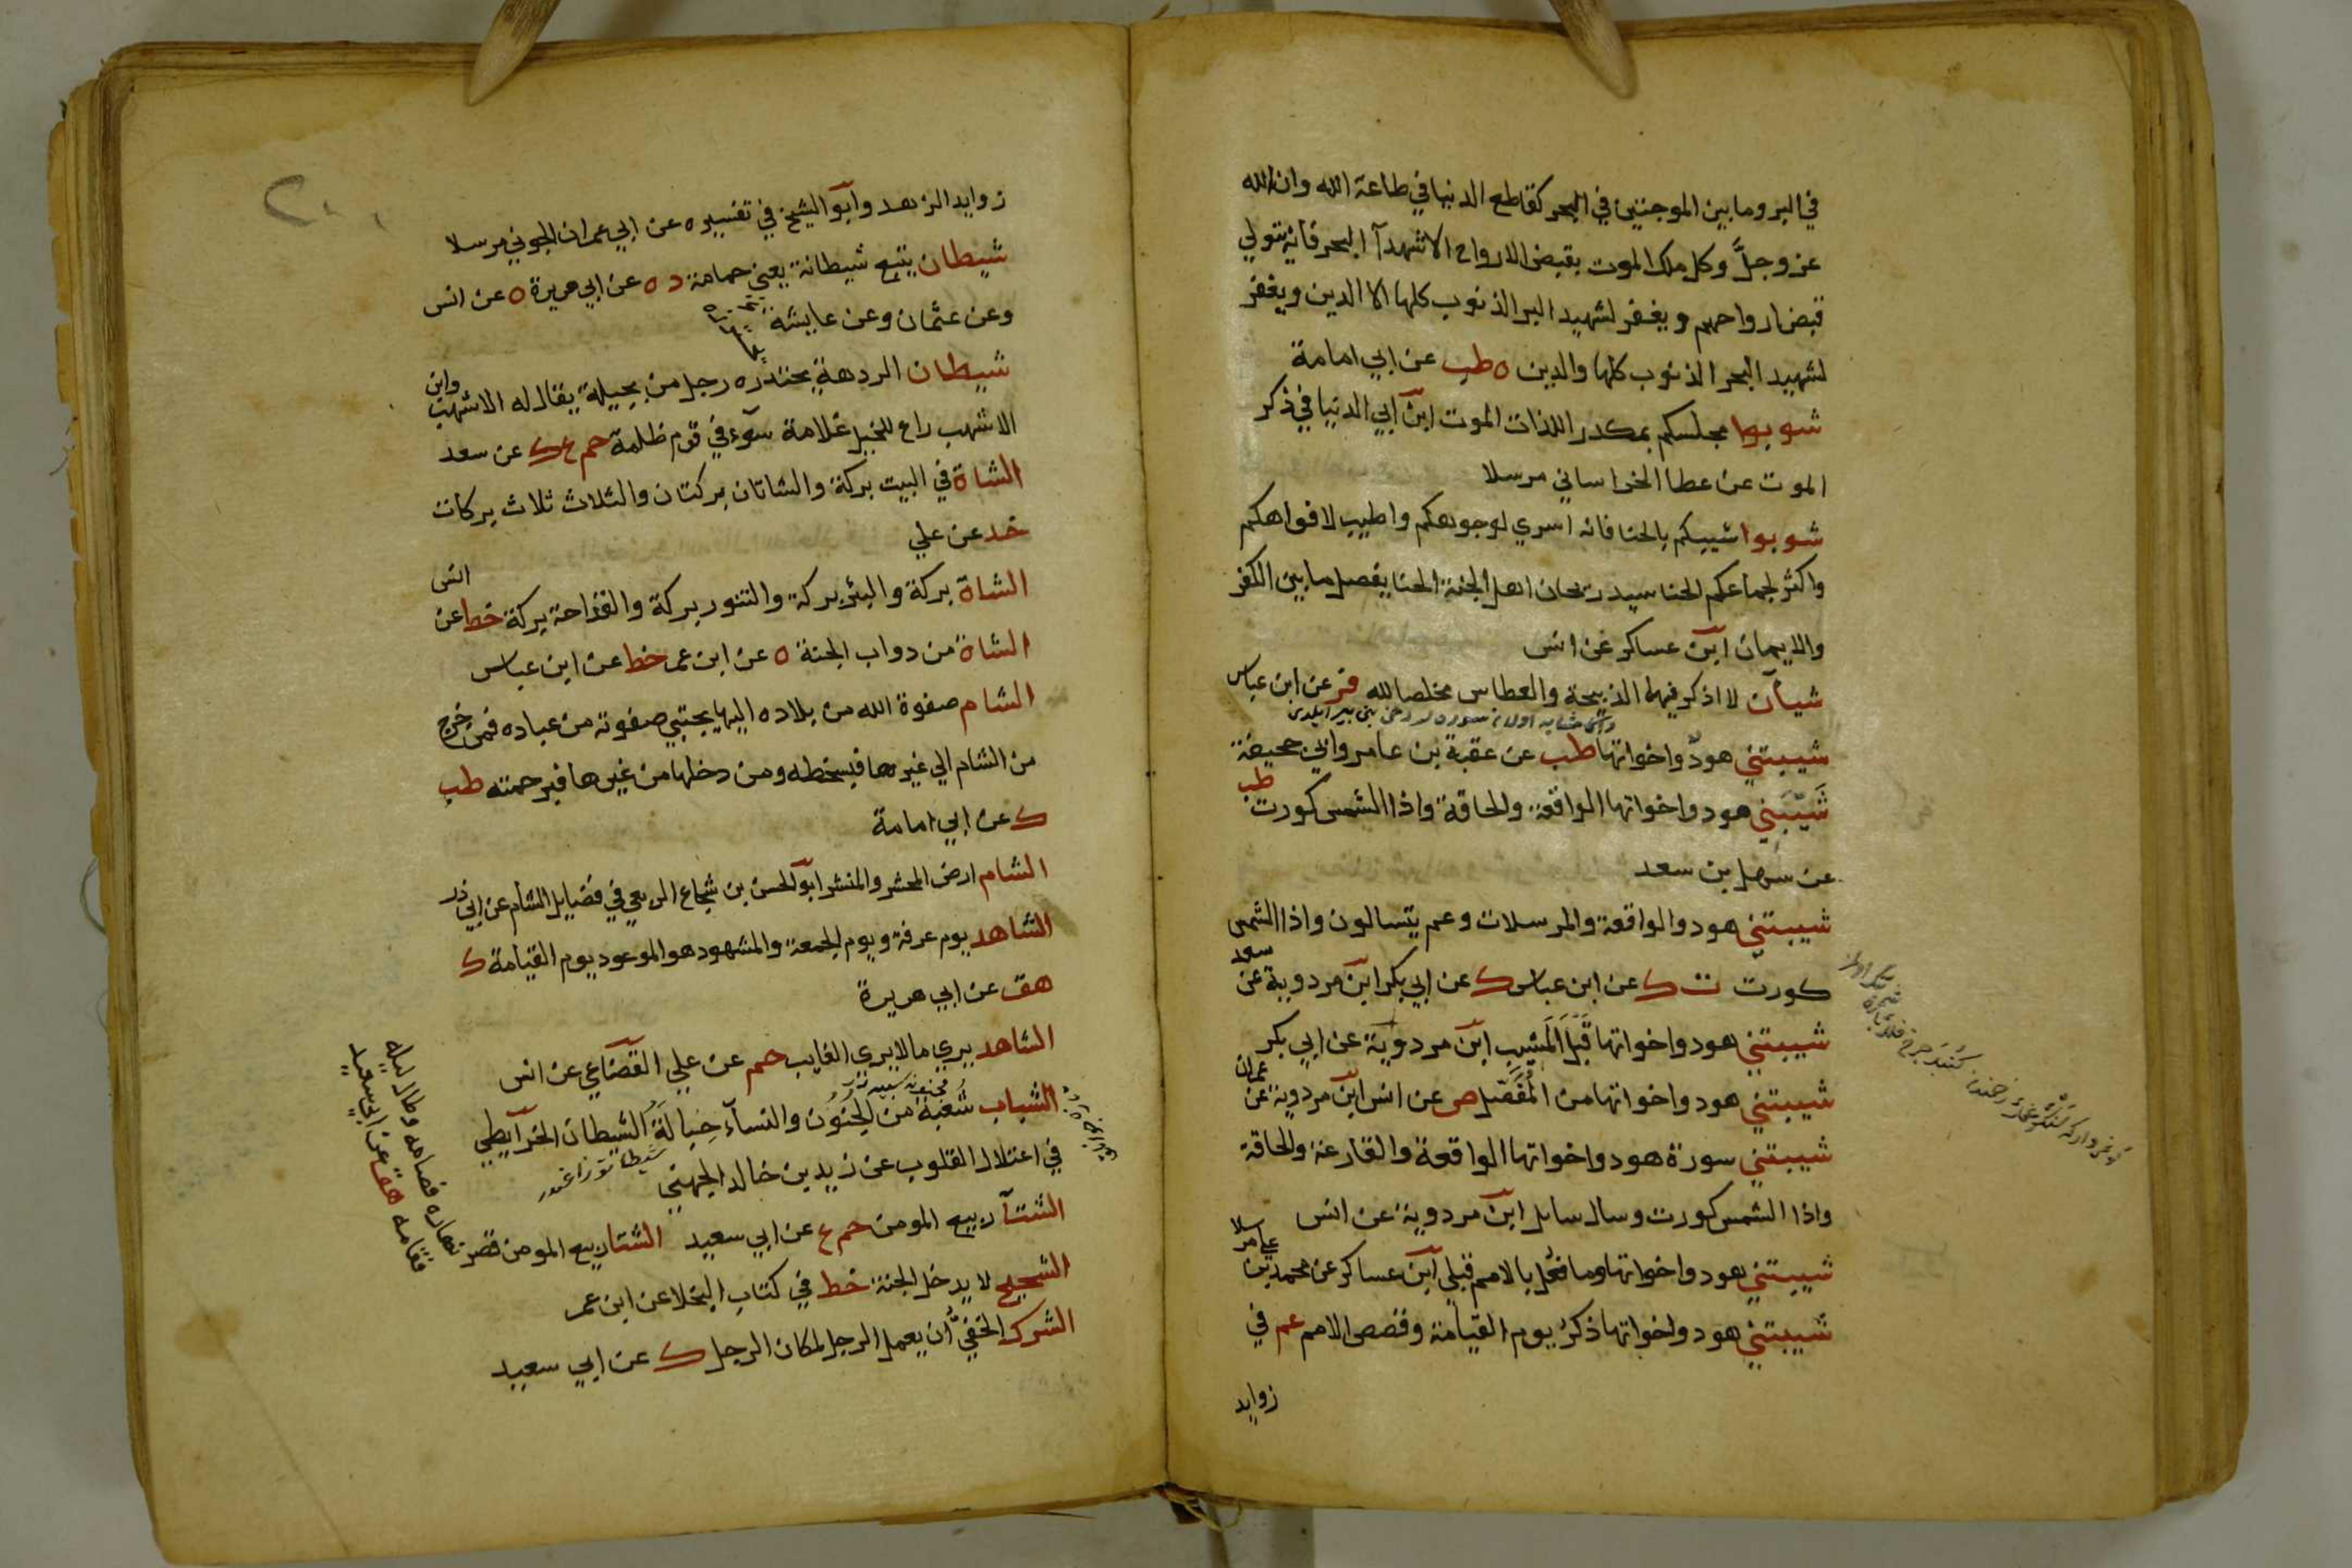 في البر وما بين الموجتين في البحر كقاطع الدنيا في طاعة الله وان الله
عز وجلَّ وكل ملك الموت بقبض الارواح الا شهدآ البحر فانه يتولي
قبض ارواحهم ويغفر لشهيد البر الذنوب كلها الا الدين ويغفر
لشهيد البحر الذنوب كلها والدين ه طب عن ابي امامة
شوبوا مجلسكم بمكدر اللذات الموت ابن ابي الدنيا في ذكر
الموت عن عطا الخراساني مرسلا
شوبوا شيبكم بالحنا فانه اسري لوجوهكم واطيب لافواهكم
واكثر لجماعكم الحنا سيد ريحان اهل الجنة الحنا يفصل ما بين الكفر
والايمان ابن عساكر عن انس
شيآن لا اذكر فيهما الذبيحة والعطاس مخلصا لله فر عن ابن عباس
شيبتني هود واخواتها طب عن عقبة بن عامر وابي جحيفة
شَيّبَتني هود واخواتها الواقعة والحاقة واذا الشمس كورت طب
عن سهل بن سعد
شيبتني هود والواقعة والمرسلات وعم يتسالون واذا الشمس
كورت ت ك عن ابن عباس ك عن ابي بكر ابن مردوية عن سعد
شيبتني هود واخواتها قَبْلَ المَشِيب ابن مردوية عن ابي بكر
شيبتني هود واخواتها من المُفَصّل ص عن انس ابن مردوية عن عمران
شيبتني سورة هود واخواتها الواقعة والقارعة والحاقة
واذا الشمس كورت وسال سايل ابن مردوية عن انس
شيبتني هود واخواتها وما فعل بالامم قبلي ابن عساكر عن محمد بن علي مرسلا
شيبتني هود واخواتها ذكر يوم القيامة وقصص الامم عم في
زوايد
زوايد الزهد وابو الشيخ في تفسيره عن ابي عمران الجوني مرسلا
شيطان يتبع شيطانة يعني حمامة د ه عن ابي هريرة ه عن انس
وعن عثمان وعن عايشة
شيطان الردهة يحتدره رجل من بجيلة يقال له الاشهب وابن
الاشهب راع للخيل علامة سوء في قوم ظلمة حم ع ك عن سعد
الشاة في البيت بركة والشاتان بركتان والثلاث ثلاث بركات
خد عن علي
الشاة بركة والبئر بركة والتنور بركة والقداحة بركة خط عن انس
الشاة من دواب الجنة ه عن ابن عمر خط عن ابن عباس
الشام صفوة الله من بلاده اليها يجتبي صفوته من عباده فمن خرج
من الشام الي غيرها فبسخطه ومن دخلها من غيرها فبرحمته طب
ك عن ابي امامة
الشام ارض المحشر والمنشر ابو الحسن بن شجاع الربعي في فضايل الشام عن ابي ذر
الشاهد يوم عرفة ويوم الجمعة والمشهود هو الموعود يوم القيامة ك
هق عن ابي هريرة
الشاهد يري مالا يري الغايب حم عن علي القضاعي عن انس
الشباب شُعْبَة من الجُنُون والنسآء حِبَالَةُ الشيطان الخرآيطي
في اعتلال القلوب عن زيد بن خالد الجهني
الشتآ ربيع المومن حم ع عن ابي سعيد الشتا ربيع المومن قصر نهاره فصامه وطال ليله
فقامه هق عن ابي سعيد
الشحيح لا يدخل الجنة خط في كتاب البخلا عن ابن عمر
الشرك الخفيُّ ان يعمل الرجل لمكان الرجل ك عن ابي سعيد